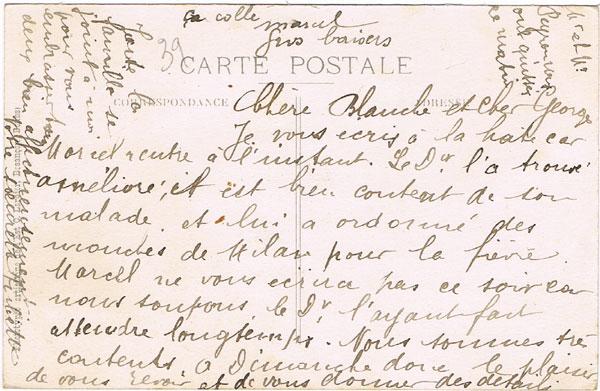 ça colle marcel
gros baisers
39
CARTE POSTALE
CORRESPONDANCE ADRESSE
Chère Blanche et cher George
Je vous ecris à la hate car
Marcel rentre à l'instant. Le Dr l'a trouvé
amélioré, il est bien content de son
malade et lui a ordonné des
mouches de Milan pour la fièvre
Marcel ne vous ecrira pas ce soir car
nous soupons, le Dr l'ayant fait
attendre longtemps. Nous sommes très
contents. A Dimanche donc le plaisir
de vous revoir et de vous donner des détails
Toute la
famille se
joint à moi
pour vous
embrasser tous
deux bien affectueusement
votre
Mr et Me
ont quitté
ce matin